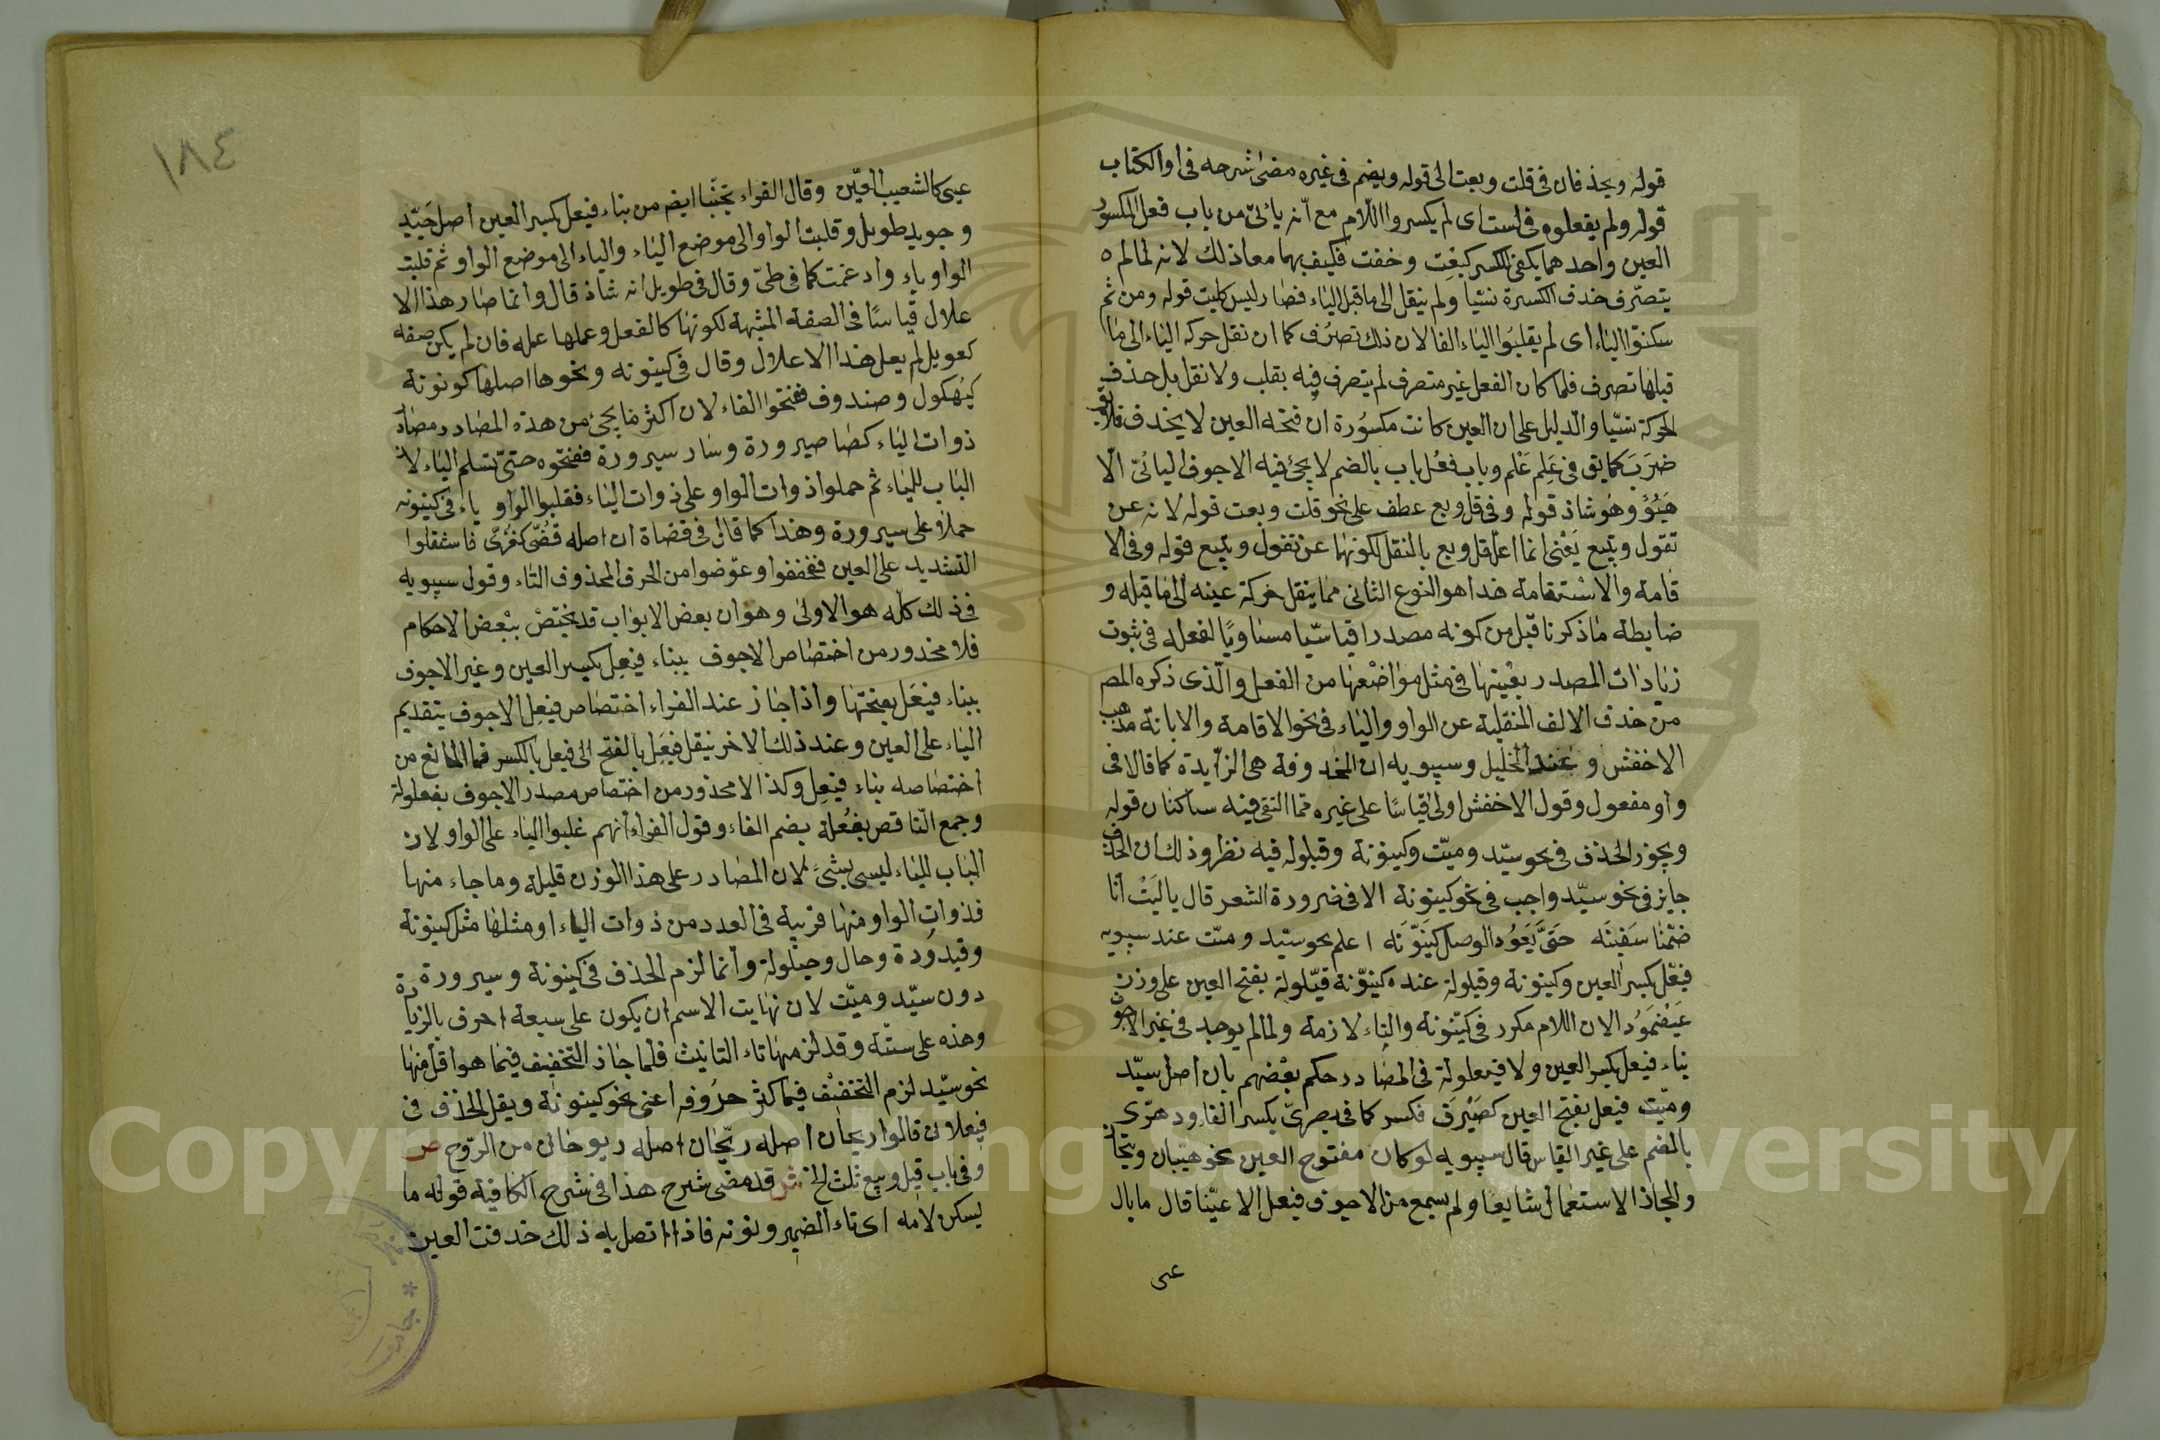 قوله ويحذفان فى قلت وبعت الى قوله ويضم فى غيره مضى شرحه فى اول الكتاب
قوله ولم يفعلوه فى لست اى لم يكسروا اللام مع انه يائى من باب فعل المكسور
العين واحدهما يكفى للكسر كبعت وخفت فكيف بهما معا ذلك لانه لما لم
يتصرف حذف الكسرة نسيا ولم ينقل الى ما قبل الياء فصار ليس كليت قوله ومن ثم
سكنوا الياء اى لم يقلبوا الياء الفا لان ذلك تصرف كما ان نقل حركة الياء الى ما
قبلها تصرف فلما كان الفعل غير متصرف لم يتصرف فيه بقلب ولا نقل بل حذف
الحركة نسيا والدليل على ان العين كانت مكسورة ان فتحة العين لا يحذف فلا يق
ضرب كما يق فى علم علم وباب فعل باب بالضم لا يجئ فيه الاجوف اليائى الا
هيؤ وهو شاذ قوله وفى قل وبع عطف على نحو قلت وبعت قوله لانه عن
تقول وتبيع يعنى انما اعل قل وبع بالنقل لكونها عن تقول وتبيع قوله وفى الا
قامة والاستقامة هذا هو النوع الثانى مما ينقل حركة عينه الى ما قبله و
ضابطة ما ذكرنا قبل من كونه مصدرا قياسيا مساويا لفعله فى ثبوت
زيادات المصدر بعينها فى مثل مواضعها من الفعل والذى ذكره المص
من حذف الالف المنقلبة عن الواو والياء فى نحو الاقامة والابانة مذهب
الاخفش وعند الخليل وسيبويه ان المحذوفة هى الزايدة كما قالا فى
واو مفعول وقول الاخفش اولى قياسا على غيره مما التقى فيه ساكنان قوله
ويجوز الحذف فى نحو سيد وميت وكينونة وقيلولة فيه نظر وذلك ان الحذف
جايز فى نحو سيد واجب فى نحو كينونة الا فى ضرورة الشعر قال ياليت انا
ضمنا سفينه حتى يعود الوصل كينونه اعلم نحو سيد وميت عند سيبويه
فيعل بكسر العين وكينونة وقيلولة عنده كينونة قيلولة بفتح العين على وزن
عيضموز الا ان اللام مكرر فى كينونة والتاء لازمة ولما لم يوجد فى غير الاجوف
بناء فيعل بكسر العين ولا فيعلولة فى المصادر حكم بعضهم بان اصل سيد
وميت فيعل بفتح العين كصيرف فكسر كما فى بصرى بكسر الفاء ودهرى
بالضم على غير القياس قال سيبويه لو كان مفتوح العين نحو هيبان وتيجان
ولجاز الاستعمال شايعا ولم يسمع من الاجوف فيعل الا عينا قال ما بال
عى
١٨٤
عينى كالشعيب العين وقال الفراء تجنبا ايض من بناء فيعل بكسر العين اصل جيد
وجويد طويل وقلبت الواو الى موضع الياء والياء الى موضع الواو ثم قلبت
الواو ياء وادغمت كما فى طى وقال فى طويل انه شاذ قال وانما صار هذا الا
علال قياسا فى الصفة المشبهة لكونها كالفعل وعملها عمله فان لم يكن صفة
كعويل لم يعل هذا الاعلال وقال فى كينونة ونحوها اصلها كونونة
كبهلول وصندوق ففتحوا الفاء لان اكثر ما يجئ من هذه المصادر مصادر
ذوات الياء كصا صيرورة وسار سيرورة ففتحوه حتى تسلم الياء لان
الباب للياء ثم حملوا ذوات الواو على ذوات الياء فقلبوا الواو ياء فى كينونة
حملا على سيرورة وهذا كما قال فى قضاة ان اصله قضى كغزى فاستثقلوا
التشديد على العين فخففوا وعوضوا من الحرف المحذوف التاء وقول سيبويه
فى ذلك كله هو الاولى وهو ان بعض الابواب قد يختص ببعض الاحكام
فلا محذور من اختصاص الاجوف ببناء فيعل بكسر العين وغير الاجوف
ببناء فيعل بفتحها واذا جاز عند الفراء اختصاص فيعل الاجوف بتقديم
الياء على العين وعند ذلك الاخر نيقل فيعل بالفتح الى فيعل بالكسر فما المانع من
اختصاصه بناء فيعل وكذا لا محذور من اختصاص مصدر الاجوف بفعلولة
وجمع الناقص بفعلة بضم الفاء وقول الفراء انهم غلبوا الياء على الواو لان
الباب للياء ليس بشئ لان المصادر على هذا الوزن قليلة وما جاء منها
فذوات الواو منها قريبة فى العدد من ذوات الياء او مثلها مثل كينونة
وقيدودة وحال وحيلولة وانما لزم الحذف فى كينونة وسيرورة
دون سيد وميت لان نهايت الاسم ان يكون على سبعة احرف بالزيادة
وهذه على ستة وقد لزمها تاء التانيث فلما جاز التخفيف فيما هو اقل منها
نحو سيد لزم التخفيف فيما كثر حروفه اعنى نحو كينونة ويقل الحذف فى
فيعلان قالوا ريحان اصله ريحان اصله ريوحان من الروح ص
وفى باب قيل وبيع ثلث الخ ش قد مضى شرح هذا فى شرح الكافية قوله ما
يسكن لامه اى تاء الضمير ونونه فاذا اتصل به ذلك حذفت العين
Copyright © King Saud University